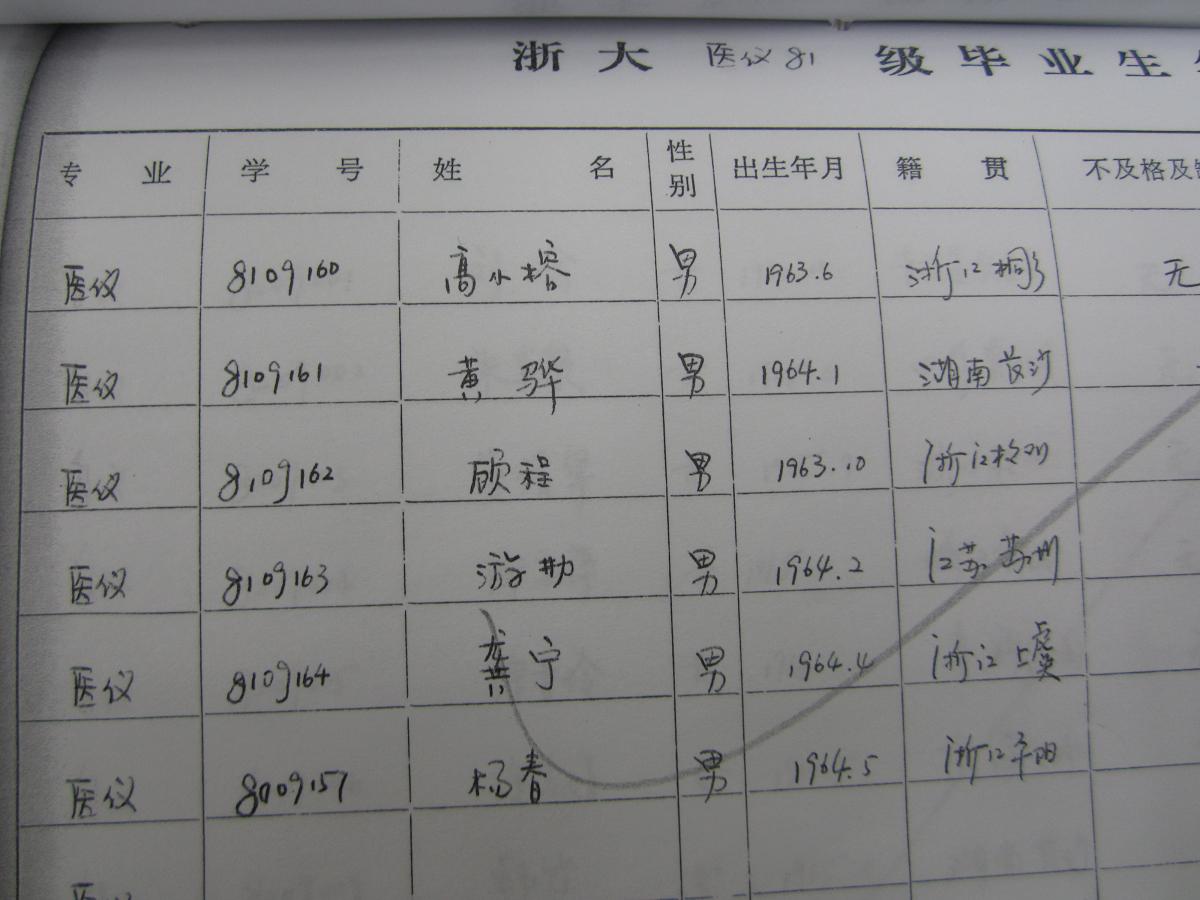 浙大 医仪81 级毕业生
专业 学号 姓名 性别 出生年月 籍贯 不及格及
医仪 8109160 高小榕 男 1963.6 浙江桐乡 无
医仪 8109161 黄骅 男 1964.1 湖南长沙
医仪 8109162 顾程 男 1963.10 浙江
医仪 8109163 游勋 男 1964.2 江苏苏州
医仪 8109164 龚宁 男 1964.4 浙江上虞
医仪 8009157 杨春 男 1964.5 浙江平阳